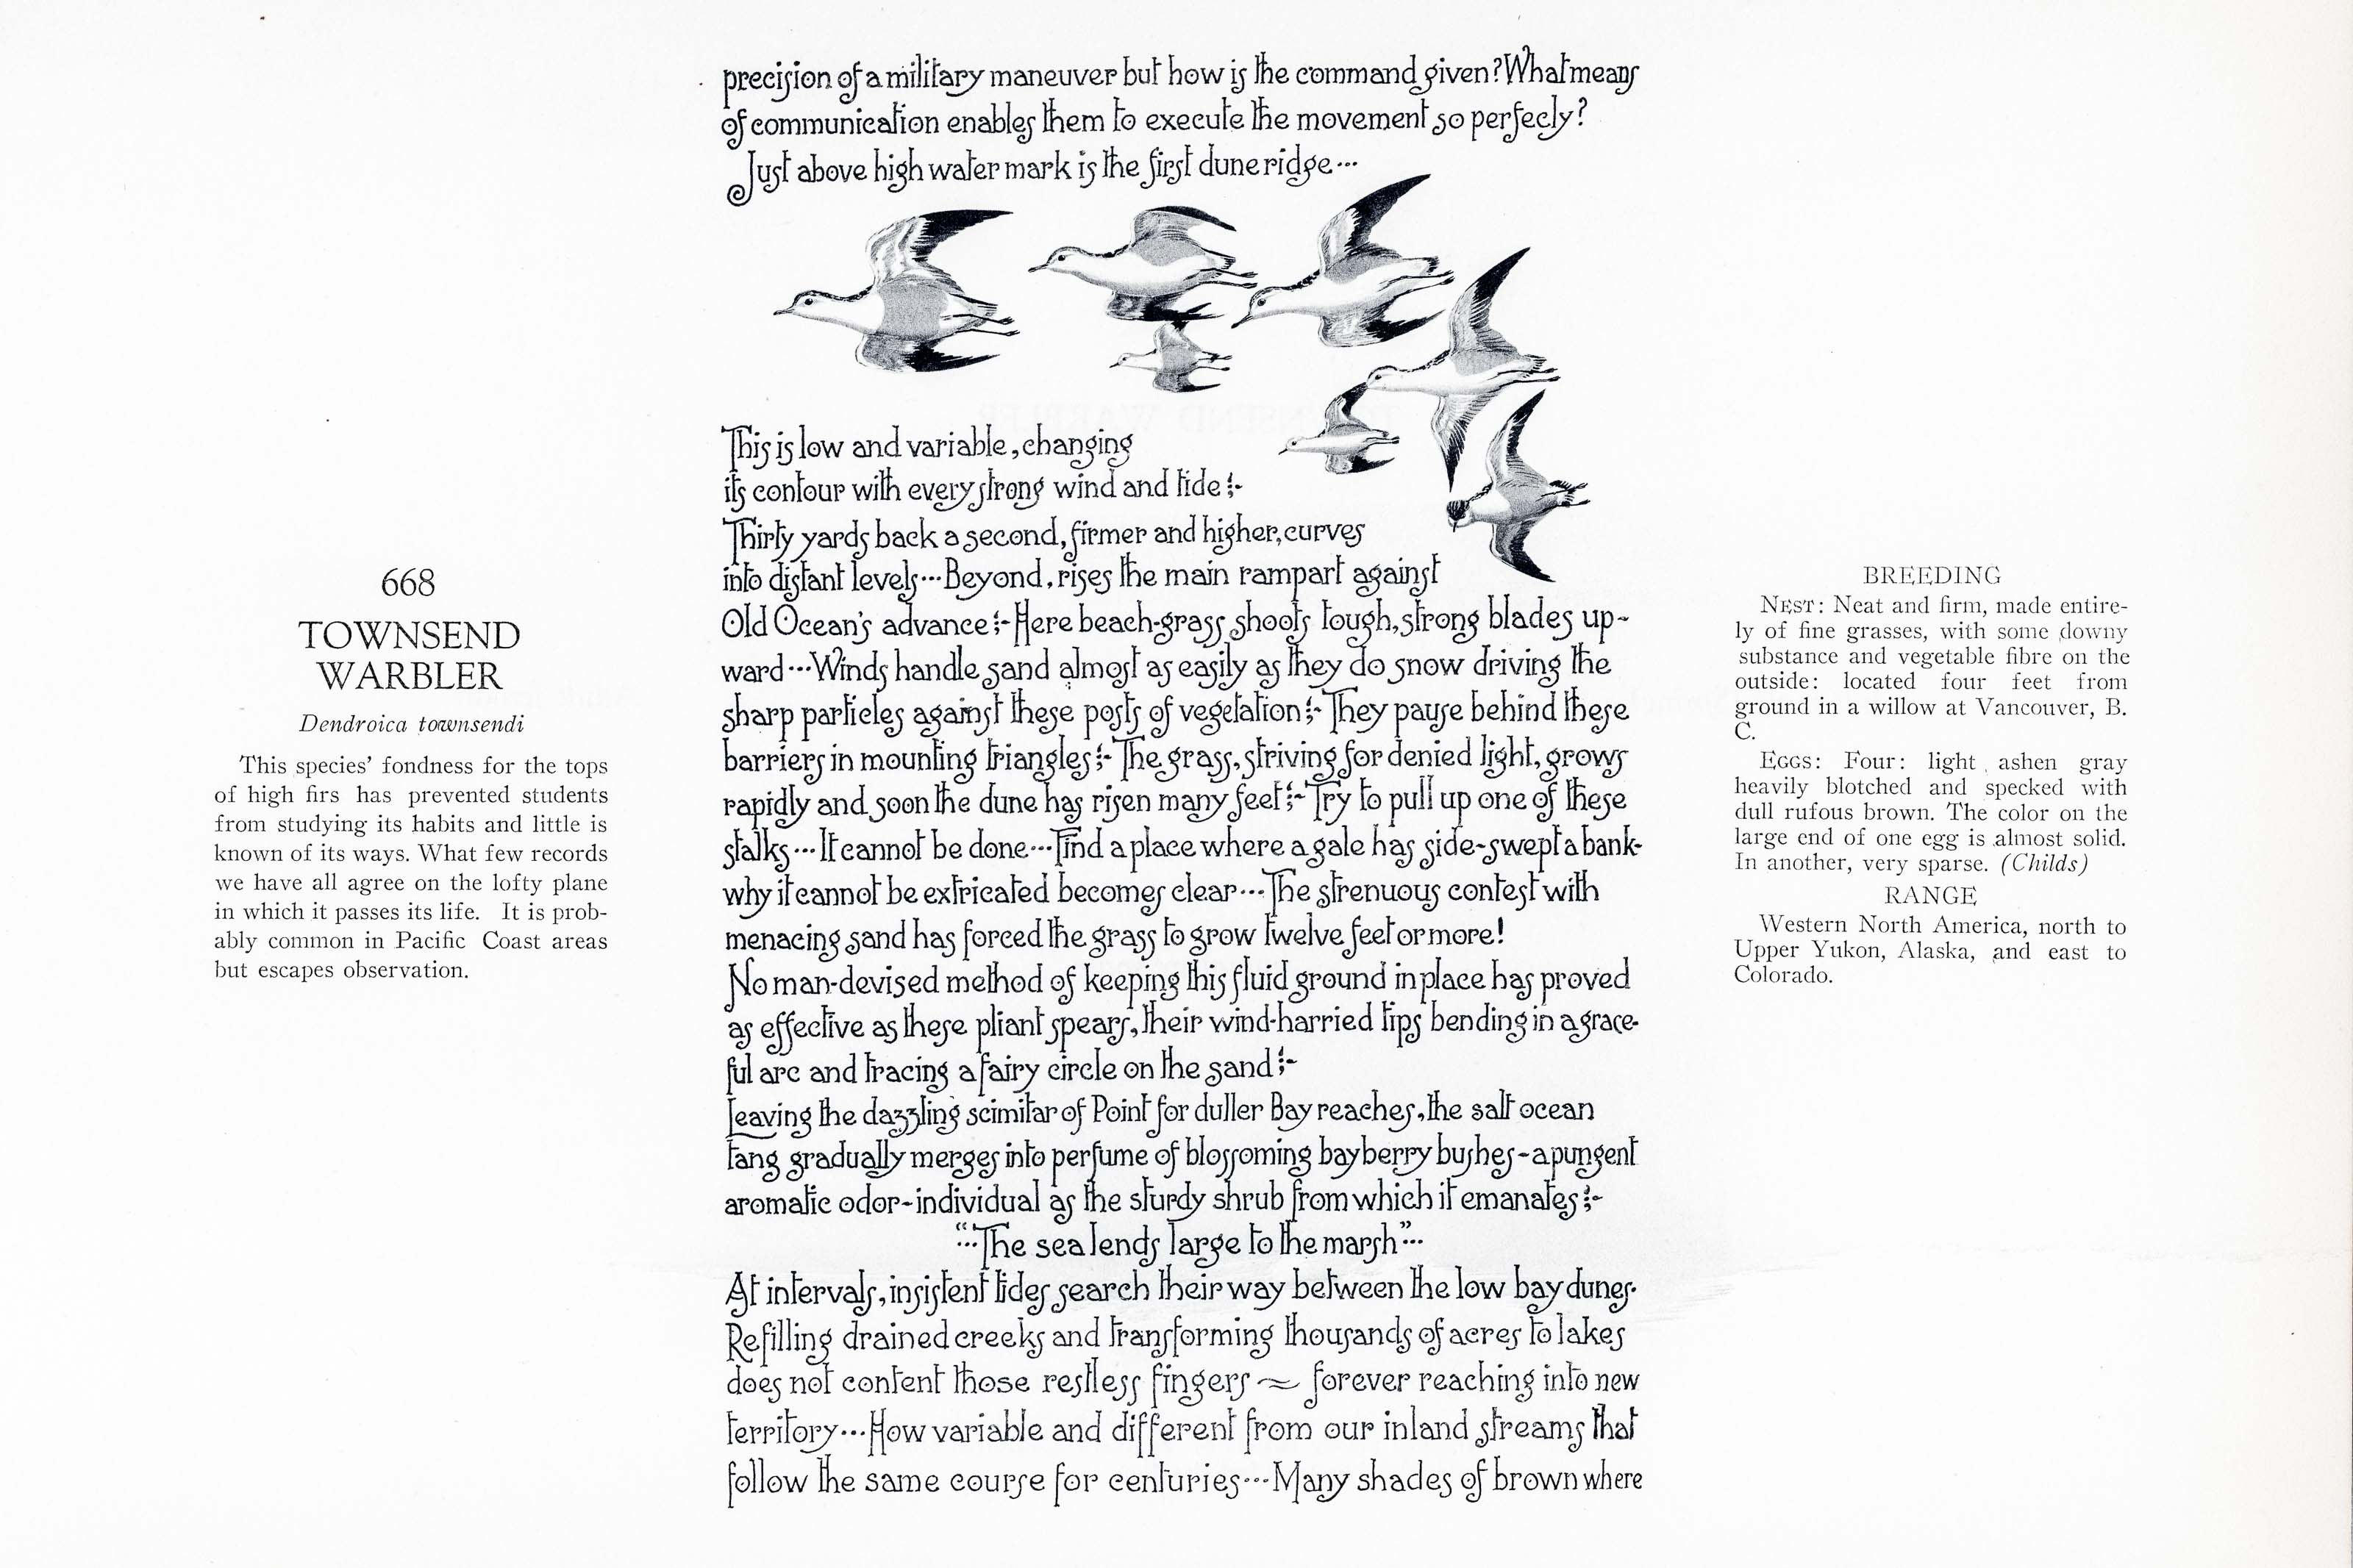 668
TOWNSEND
WARBLER
Dendroica townsendi
This species' fondness for the tops
of high firs has prevented students
from studying its habits and little is
known of its ways. What few records
we have all agree on the lofty plane
in which it passes its life. It is prob-
ably common in Pacific Coast areas
but escapes observation.
precision of a military maneuver but how is the command given? What means
of communication enables them to execute the movement so perfecly?
Just above high water mark is the first dune ridge...
This is low and variable, changing
its contour with every strong wind and tide:-
Thirty yards back a second, firmer and higher, curves
into distant levels... Beyond, rises the main rampart against
Old Ocean's advance:- Here beach-grass shoots tough, strong blades up-
ward... Winds handle sand almost as easily as they do snow driving the
sharp particles against these posts of vegetation:- They pause behind these
barriers in mounting triangles:- The grass, striving for denied light, grows
rapidly and soon the dune has risen many feet:- Try to pull up one of these
stalks... It cannot be done... Find a place where a gale has side-swept a bank-
why it cannot be extricated becomes clear... The strenuous contest with
menacing sand has forced the grass to grow twelve feet or more!
No man-devised method of keeping this fluid ground in place has proved
as effective as these pliant spears, their wind-harried tips bending in a grace-
ful arc and tracing a fairy circle on the sand:-
Leaving the dazzling scimitar of Point for duller Bay reaches, the salt ocean
tang gradually merges into perfume of blossoming bayberry bushes - a pungent
aromatic odor - individual as the sturdy shrub from which it emanates:-
"...The sea lends large to the marsh"...
At intervals, insistent tides search their way between the low bay dunes.
Refilling drained creeks and transforming thousands of acres to lakes
does not content those restless fingers ~ forever reaching into new
territory... How variable and different from our inland streams that
follow the same course for centuries... Many shades of brown where
BREEDING
NEST: Neat and firm, made entire-
ly of fine grasses, with some downy
substance and vegetable fibre on the
outside: located four feet from
ground in a willow at Vancouver, B.
C.
EGGS: Four: light ashen gray
heavily blotched and specked with
dull rufous brown. The color on the
large end of one egg is almost solid.
In another, very sparse. (Childs)
RANGE
Western North America, north to
Upper Yukon, Alaska, and east to
Colorado.